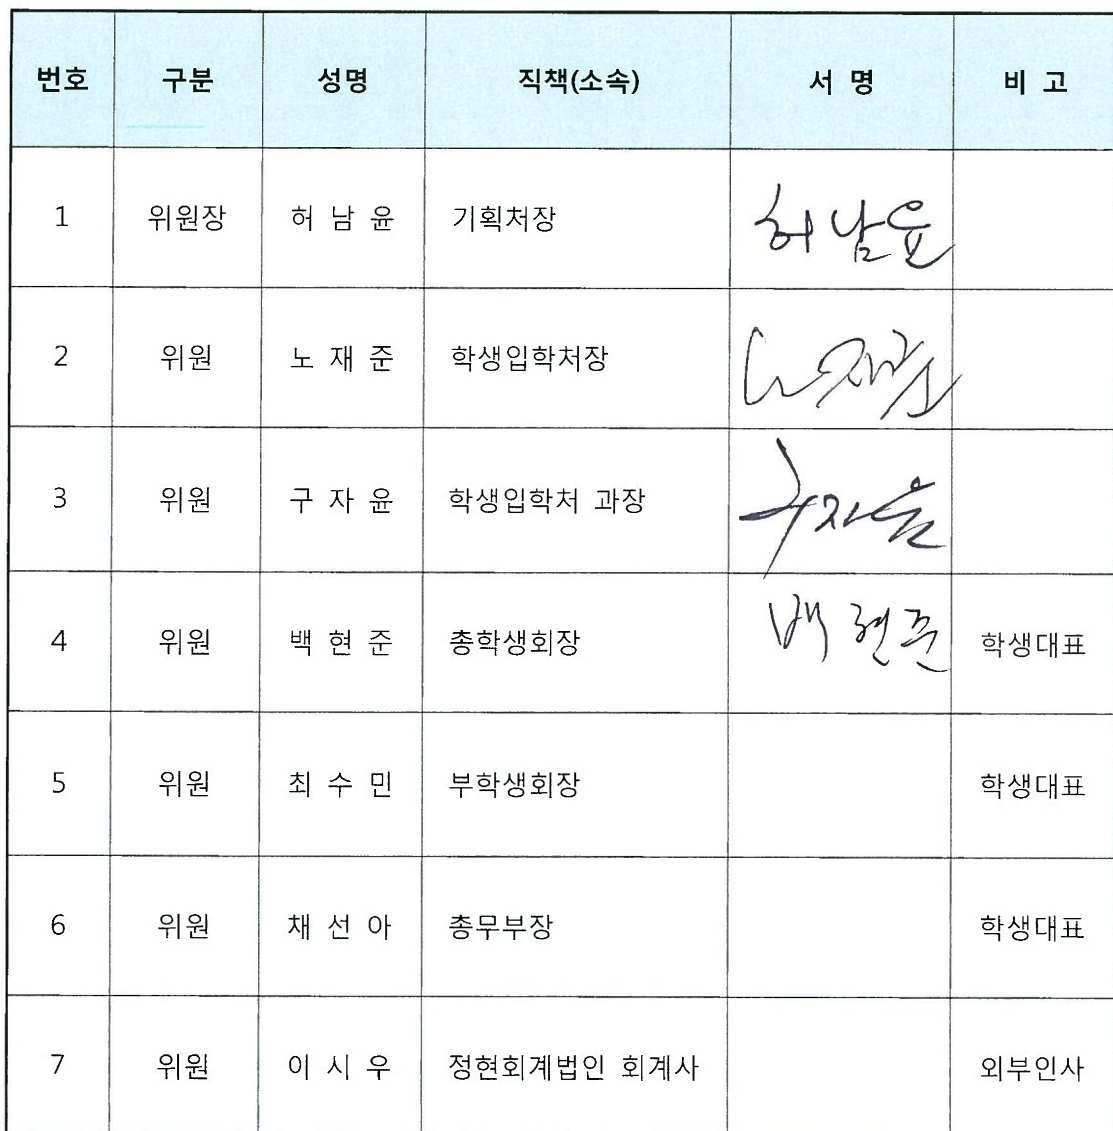 번호 구분 성명 직책(소속) 서 명 비 고
1 위원장 허 남 윤 기획처장 허남윤
2 위원 노 재 준 학생입학처장 노재준
3 위원 구 자 윤 학생입학처 과장 구자윤
4 위원 백 현 준 총학생회장 백현준 학생대표
5 위원 최 수 민 부학생회장 학생대표
6 위원 채 선 아 총무부장 학생대표
7 위원 이 시 우 정현회계법인 회계사 외부인사